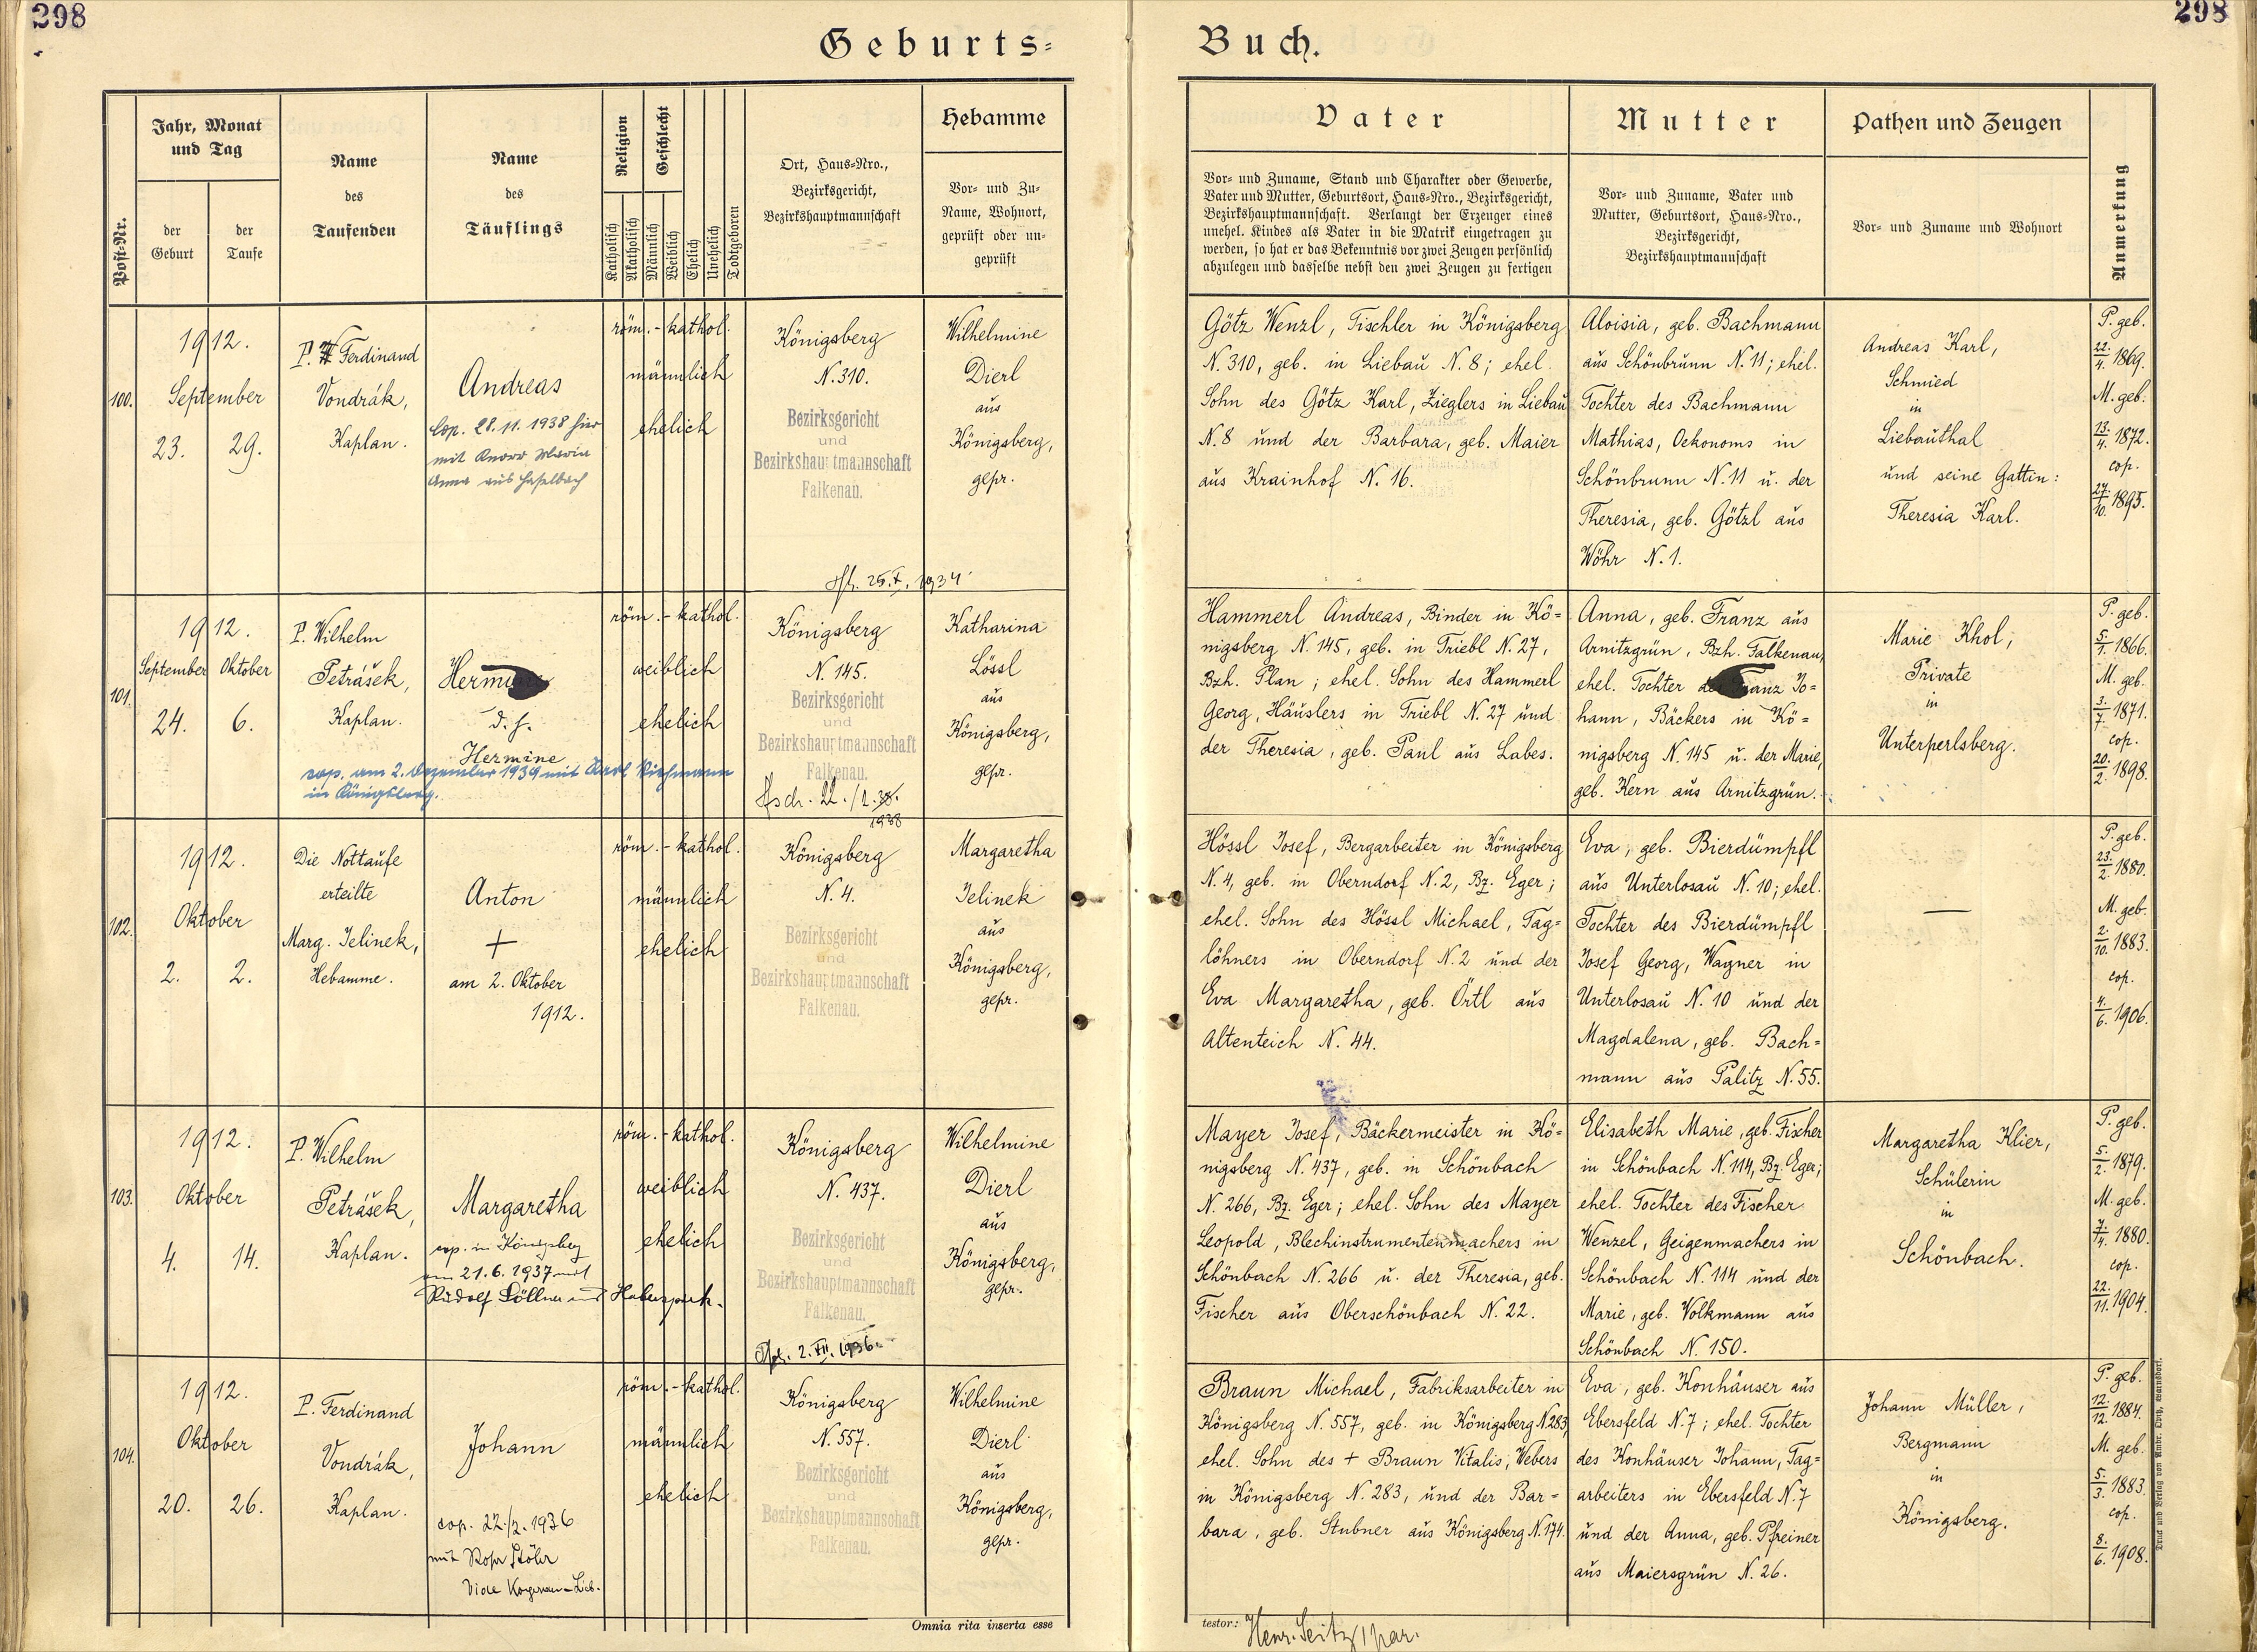 298
298
Geburts=
Buch.
Post-Nr.
Jahr, Monat
und Tag
der
Geburt
der
Taufe
Name
des
Taufenden
Name
des
Täuflings
Religion
Geschlecht
Katholisch
Akatholisch
Männlich
Weiblich
Ehelich
Unehelich
Todtgeboren
Ort, Haus=Nro.,
Bezirksgericht,
Bezirkshauptmannschaft
Hebamme
Vor= und Zu=
Name, Wohnort,
geprüft oder un=
geprüft
Vater
Vor= und Zuname, Stand und Charakter oder Gewerbe,
Vater und Mutter, Geburtsort, Haus=Nro., Bezirksgericht,
Bezirkshauptmannschaft. Verlangt der Erzeuger eines
unehel. Kindes als Vater in die Matrik eingetragen zu
werden, so hat er das Bekenntnis vor zwei Zeugen persönlich
abzulegen und dasselbe nebst den zwei Zeugen zu fertigen
Mutter
Vor= und Zuname, Vater und
Mutter, Geburtsort, Haus=Nro.,
Bezirksgericht,
Bezirkshauptmannschaft
Pathen und Zeugen
Vor= und Zuname und Wohnort
Anmerkung
100.
1912.
September
23. 29.
P. Ferdinand
Vondrák,
Kaplan.
Andreas
Cop. 28.11.1938 hier
mit Knorr Maria
Anna aus Haselbach
röm.-kathol.
männlich
ehelich
Königsberg
N. 310.
Bezirksgericht
und
Bezirkshauptmannschaft
Falkenau.
Wilhelmine
Dierl
aus
Königsberg,
gepr.
Götz Wenzl, Tischler in Königsberg
N. 310, geb. in Liebau N. 8; ehel.
Sohn des Götz Karl, Zieglers in Liebau
N. 8 und der Barbara, geb. Maier
aus Krainhof N. 16.
Aloisia, geb. Bachmann
aus Schönbrunn N. 11; ehel.
Tochter des Bachmann
Mathias, Oekonoms in
Schönbrunn N. 11 u. der
Theresia, geb. Götzl aus
Wöhr N. 1.
Andreas Karl,
Schmied
in
Liebauthal
und seine Gattin:
Theresia Karl.
P. geb.
22./4. 1869.
M. geb.
13./4. 1872.
cop.
27./10. 1895.
25. X. 1934
101.
1912.
September Oktober
24. 6.
P. Wilhelm
Petrášek,
Kaplan.
Hermine
d. h.
Hermine
cop. am 2. Dezember 1939 mit Karl
in Königsberg.
röm.-kathol.
weiblich
ehelich
Königsberg
N. 145.
Bezirksgericht
und
Bezirkshauptmannschaft
Falkenau.
1938
Katharina
Lössl
aus
Königsberg,
gepr.
Hammerl Andreas, Binder in Kö=
nigsberg N. 145, geb. in Triebl N. 27,
Bzh. Plan; ehel. Sohn des Hammerl
Georg, Häuslers in Triebl N. 27 und
der Theresia, geb. Paul aus Labes.
Anna, geb. Franz aus
Arnitzgrün, Bzh. Falkenau,
ehel. Tochter des Franz Jo=
hann, Bäckers in Kö=
nigsberg N. 145 u. der Marie,
geb. Kern aus Arnitzgrün.
Marie Khol,
Private
in
Unterperlsberg.
P. geb.
5./1. 1866.
M. geb.
3./7. 1871.
cop.
20./2. 1898.
102.
1912.
Oktober
2. 2.
Die Nottaufe
erteilte
Marg. Jelinek,
Hebamme.
Anton
+
am 2. Oktober
1912.
röm.-kathol.
männlich
ehelich
Königsberg
N. 4.
Bezirksgericht
und
Bezirkshauptmannschaft
Falkenau.
Margaretha
Jelinek
aus
Königsberg,
gepr.
Hössl Josef, Bergarbeiter in Königsberg
N. 4, geb. in Oberndorf N. 2, Bz. Eger;
ehel. Sohn des Hössl Michael, Tag=
löhners in Oberndorf N. 2 und der
Eva Margaretha, geb. Örtl aus
Altenteich N. 44.
Eva, geb. Bierdümpfl
aus Unterlosau N. 10; ehel.
Tochter des Bierdümpfl
Josef Georg, Wagner in
Unterlosau N. 10 und der
Magdalena, geb. Bach=
mann aus Palitz N. 55.
—
P. geb.
23./2. 1880.
M. geb.
2./10. 1883.
cop.
4./6. 1906.
103.
1912.
Oktober
4. 14.
P. Wilhelm
Petrášek,
Kaplan.
Margaretha
cop. in Königsberg
am 21.6.1937 mit
Rudolf Löllner aus Haberspirk.
röm.-kathol.
weiblich
ehelich
Königsberg
N. 437.
Bezirksgericht
und
Bezirkshauptmannschaft
Falkenau.
2. XII. 1936.
Wilhelmine
Dierl
aus
Königsberg,
gepr.
Mayer Josef, Bäckermeister in Kö=
nigsberg N. 437, geb. in Schönbach
N. 266, Bz. Eger; ehel. Sohn des Mayer
Leopold, Blechinstrumentenmachers in
Schönbach N. 266 u. der Theresia, geb.
Fischer aus Oberschönbach N. 22.
Elisabeth Marie, geb. Fischer
in Schönbach N. 114, Bz. Eger;
ehel. Tochter des Fischer
Wenzel, Geigenmachers in
Schönbach N. 114 und der
Marie, geb. Volkmann aus
Schönbach N. 150.
Margaretha Klier,
Schülerin
in
Schönbach.
P. geb.
5./2. 1879.
M. geb.
7./4. 1880.
cop.
22./11. 1904.
104.
1912.
Oktober
20. 26.
P. Ferdinand
Vondrák,
Kaplan.
Johann
cop. 22./2. 1936
mit Rosa Stöhr
röm.-kathol.
männlich
ehelich
Königsberg
N. 557.
Bezirksgericht
und
Bezirkshauptmannschaft
Falkenau.
Wilhelmine
Dierl
aus
Königsberg,
gepr.
Braun Michael, Fabriksarbeiter in
Königsberg N. 557, geb. in Königsberg N. 283,
ehel. Sohn des + Braun Vitalis, Webers
in Königsberg N. 283, und der Bar=
bara, geb. Stubner aus Königsberg N. 174.
Eva, geb. Konhäuser aus
Ebersfeld N. 7; ehel. Tochter
des Konhäuser Johann, Tag=
arbeiters in Ebersfeld N. 7
und der Anna, geb. Pfreiner
aus Maiersgrün N. 26.
Johann Müller,
Bergmann
in
Königsberg.
P. geb.
12./12. 1884.
M. geb.
5./3. 1883.
cop.
8./6. 1908.
Omnia rita inserta esse
testor: Henr. Seitz, par.
Druck und Verlag von Ambr. Opitz, Warnsdorf.